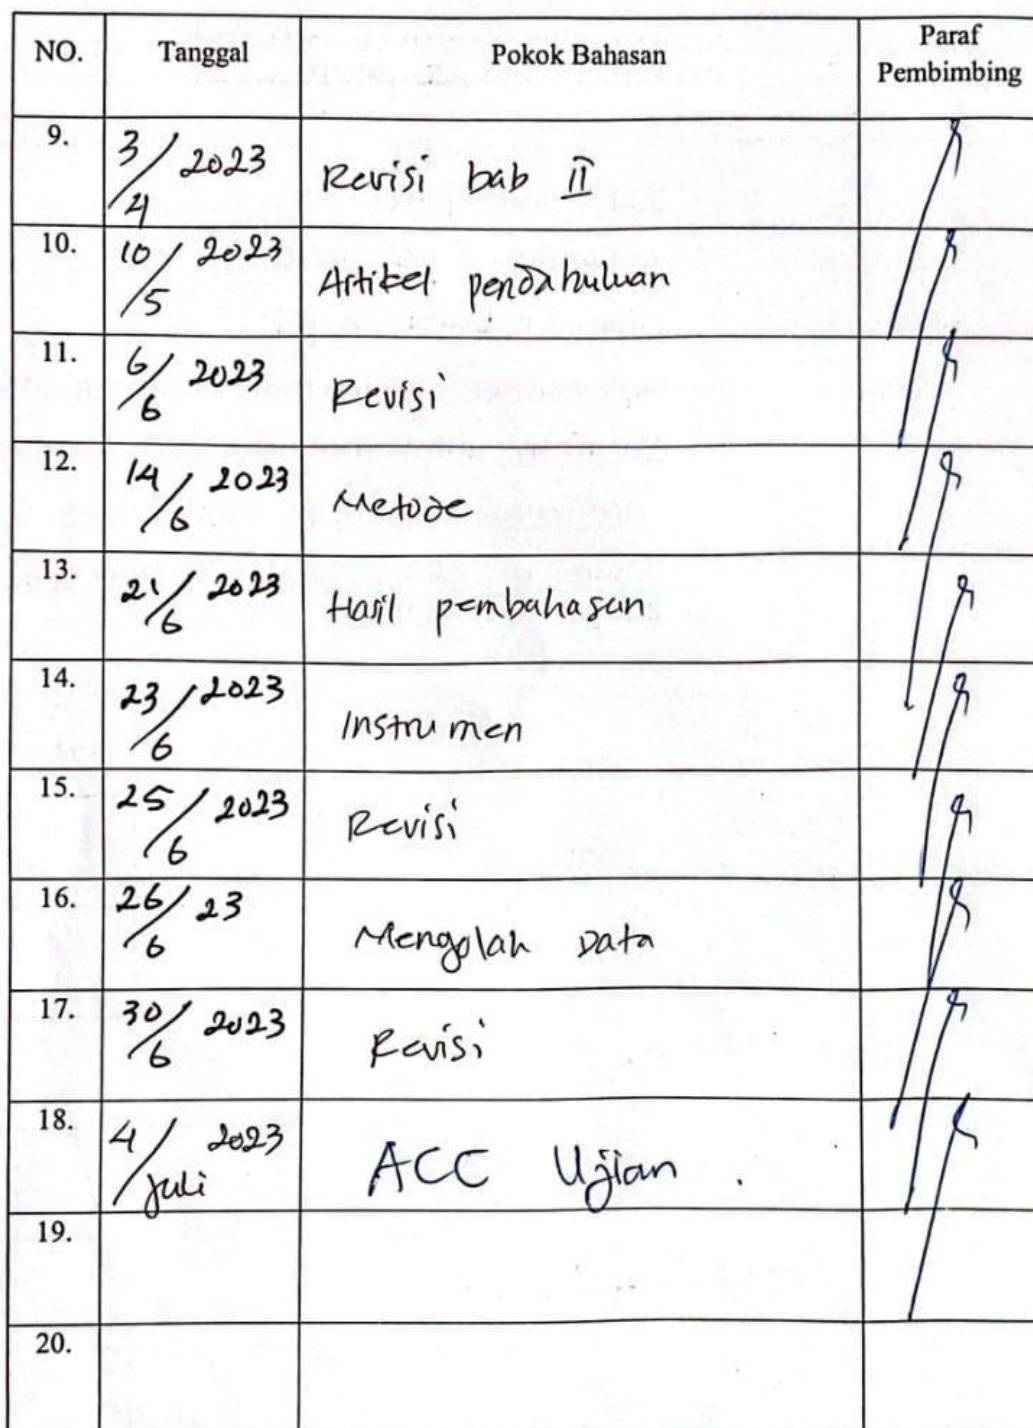 NO. Tanggal Pokok Bahasan Paraf Pembimbing
9. 3/4 2023 Revisi bab II
10. 10/5 2023 Artikel pendahuluan
11. 6/6 2023 Revisi
12. 14/6 2023 Metode
13. 21/6 2023 Hasil pembahasan
14. 23/6 2023 Instrumen
15. 25/6 2023 Revisi
16. 26/6 23 Mengolah Data
17. 30/6 2023 Revisi
18. 4/Juli 2023 ACC Ujian.
19.
20.